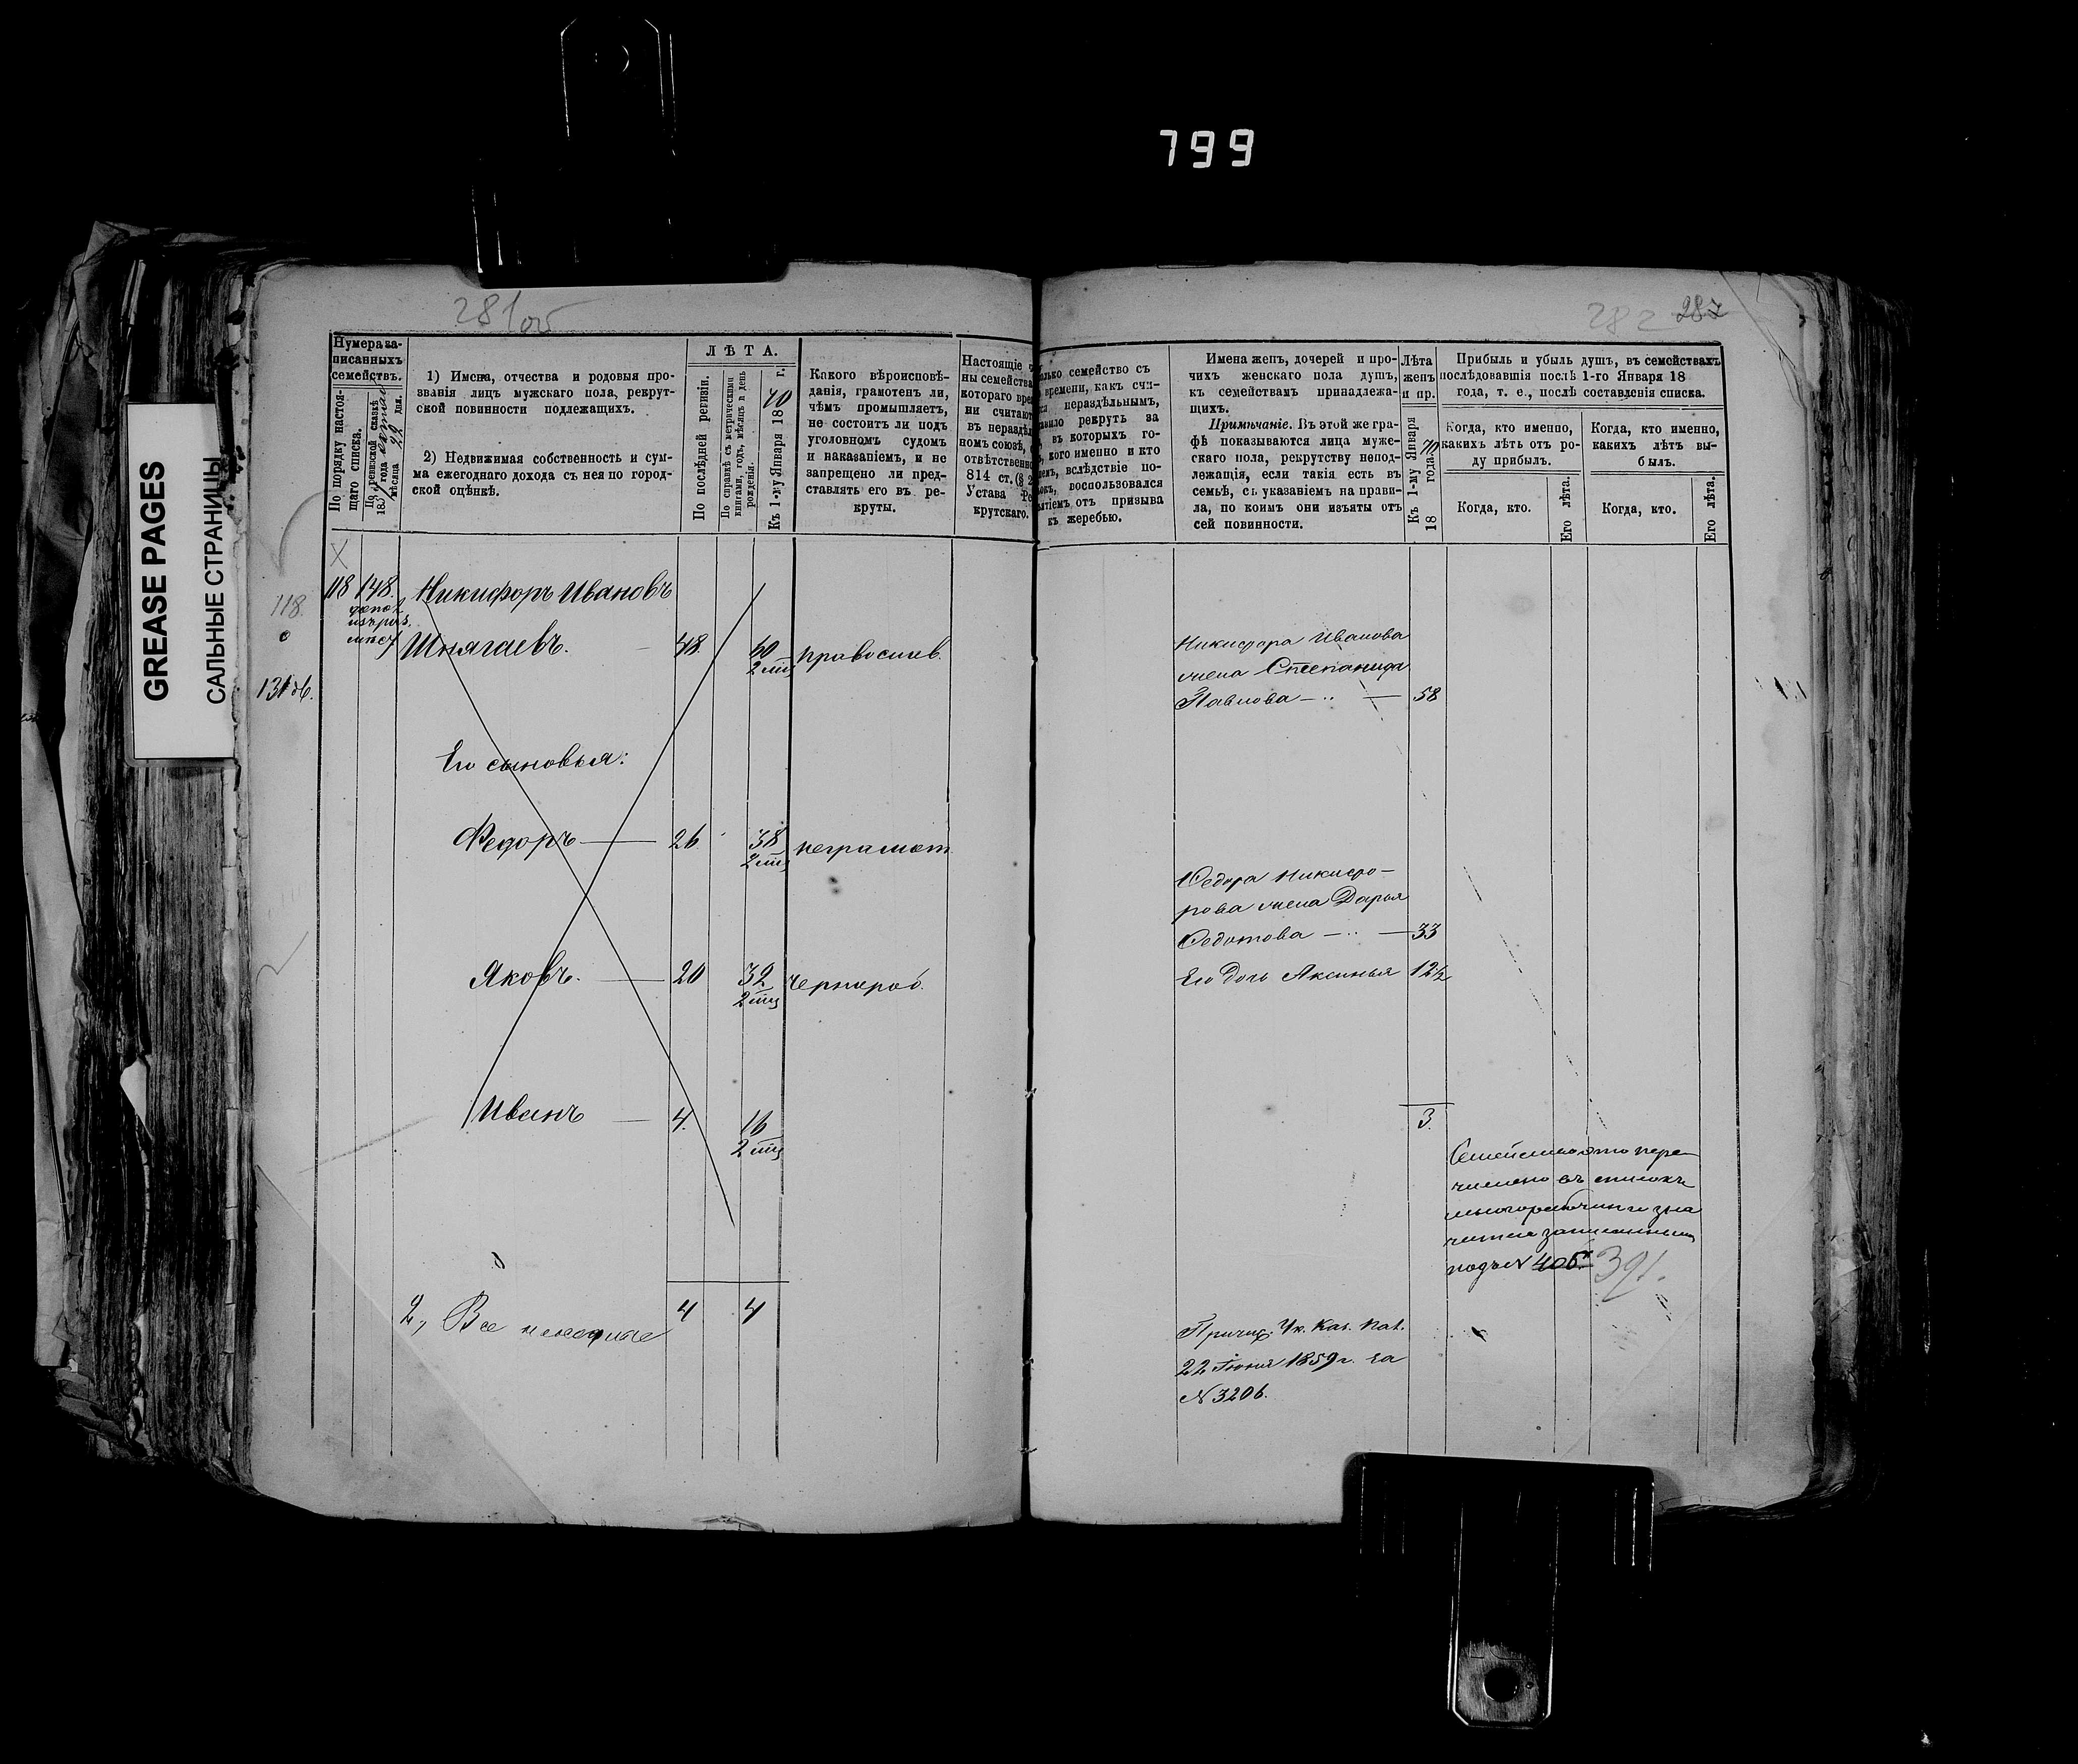 799
GREASE PAGES
САЛЬНЫЕ СТРАНИЦЫ
281об
Нумера за-
писанныхъ
семействъ.
По порядку настоя-
щаго списка.
По ревизской сказкѣ
года
мѣсяца 22 дня.
1) Имена, отчества и родовыя про-
званія лицъ мужскаго пола, рекрут-
ской повинности подлежащихъ.
2) Недвижимая собственность и сум-
ма ежегоднаго дохода съ нея по город-
ской оцѣнкѣ.
ЛѢТА.
По послѣдней ревизіи.
По справкѣ съ метрическими
книгами, годъ, мѣсяцъ и день
рожденія.
Къ 1-му Января 1870 г.
Какого вѣроисповѣ-
данія, грамотенъ ли,
чѣмъ промышляетъ,
не состоитъ ли подъ
уголовномъ судомъ
и наказаніемъ, и не
запрещено ли пред-
ставлять его въ ре-
круты.
Настоящіе
ны семейства
котораго вре
ни считают
въ нераздѣл
номъ союзѣ,
отвѣтственно
814 ст. (§ 2
Устава Ре
крутскаго.
118 148.
118.
Никифоръ Ивановъ
Шнягаевъ. 48. 60 православ.
2 мц
Его сыновья:
Федоръ 26 38 неграмот
2 мц
Яковъ. 20 32 чернораб.
2 мц
Иванъ 4. 16
2 мц
4 4
2, Все
282 282
олько семейство съ
времени, какъ счи-
ся нераздѣльнымъ,
авило рекрутъ за
въ которыхъ го-
кого именно и кто
вслѣдствіе по-
воспользовался
ытіемъ отъ призыва
къ жеребью.
Имена женъ, дочерей и про-
чихъ женскаго пола душъ,
къ семействамъ принадлежа-
щихъ.
Примѣчаніе. Въ этой же гра-
фѣ показываются лица муже-
скаго пола, рекрутству непод-
лежащія, если такія есть въ
семьѣ, съ указаніемъ на прави-
ла, по коимъ они изъяты отъ
сей повинности.
Лѣта
женъ
и пр.
Къ 1-му Января
1870 года
Прибыль и убыль душъ, въ семействахъ
послѣдовавшія послѣ 1-го Января 18
года, т. е., послѣ составленія списка.
Когда, кто именно,
какихъ лѣтъ отъ ро-
ду прибылъ.
Когда, кто именно,
какихъ лѣтъ вы-
былъ.
Когда, кто.
Его лѣта.
Когда, кто.
Его лѣта.
Никифора Иванова
жена Степанида
Павлова 58
Федора Никифо-
рова жена Дарья
Федотова 33
Его дочь Аксинья 12½
3.
Семейство это пере-
числено въ списокъ
многорабочихъ и зна
чится записаннымъ
подъ N 405 391.
Причис. Ук. Каз. Пал.
22 Іюня 1859 г. за
N 3206.